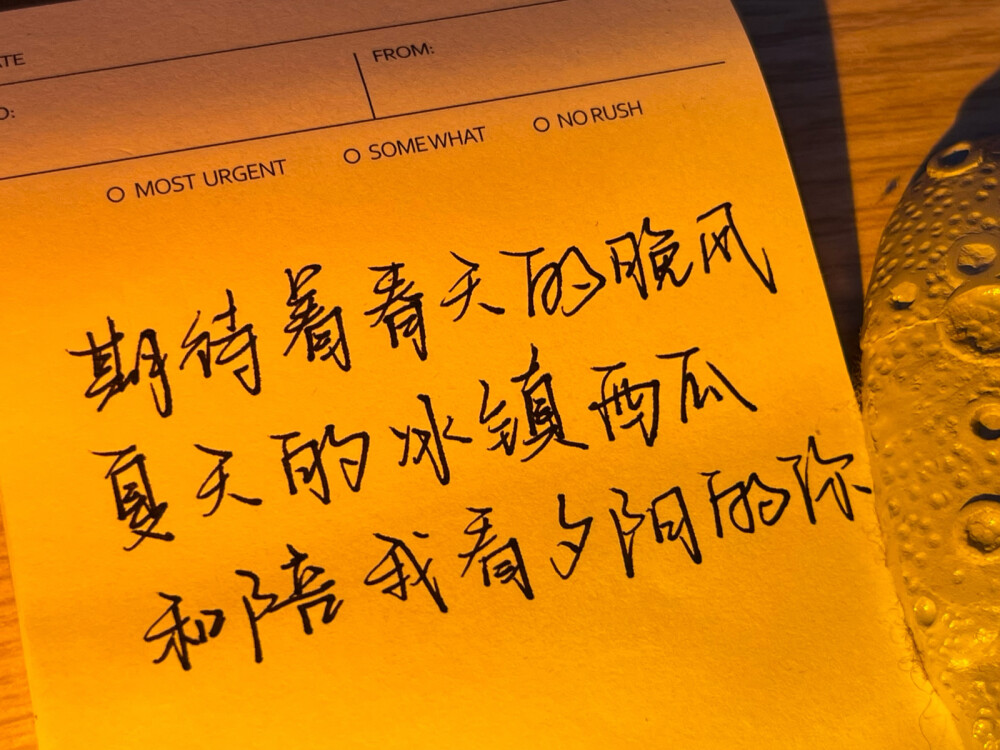 ATE
O:
FROM:
MOST URGENT SOMEWHAT NO RUSH
期待着春天的晚风
夏天的冰镇西瓜
和陪我看夕阳的你